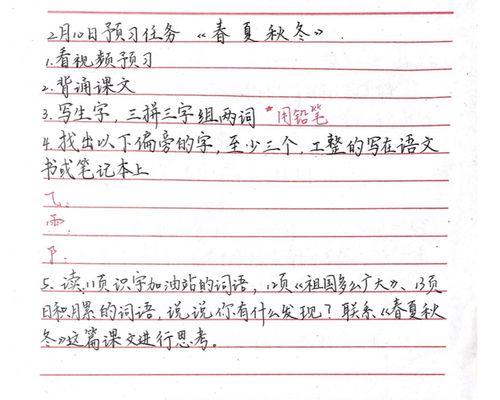 2月10日预习任务 《春夏秋冬》.
1.看视频预习
2.背诵课文
3.写生字，三拼三字组两词 *用铅笔
4.找出以下偏旁的字，至少三个，工整的写在语文
书或笔记本上
飞:
雨:
阝:
5.读11页识字加油站的词语，12页《祖国多么广大》、13页
日积月累的词语，说说你有什么发现？联系《春夏秋
冬》这篇课文进行思考。